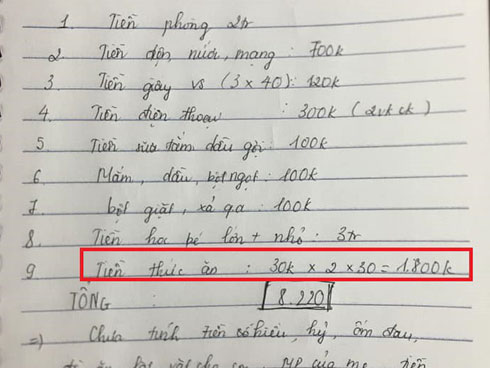 1. Tiền phòng 2tr
2. Tiền điện, nước, mạng : 700k
3 Tiền giấy vs (3 x 40): 120k
4. Tiền điện thoại : 300k (2vk ck)
5 Tiền sữa tắm dầu gội : 100k
6 Mắm, dầu, bột ngọt : 100k
7. bột giặt, xả qa : 100k
8. Tiền học bé lớn + nhỏ : 3tr
9 Tiền thức ăn : 30k x 2 x 30 = 1.800k
TỔNG : 8.220
=) Chưa tính tiền có hiếu, hỷ, ốm đau,
của mẹ tiền